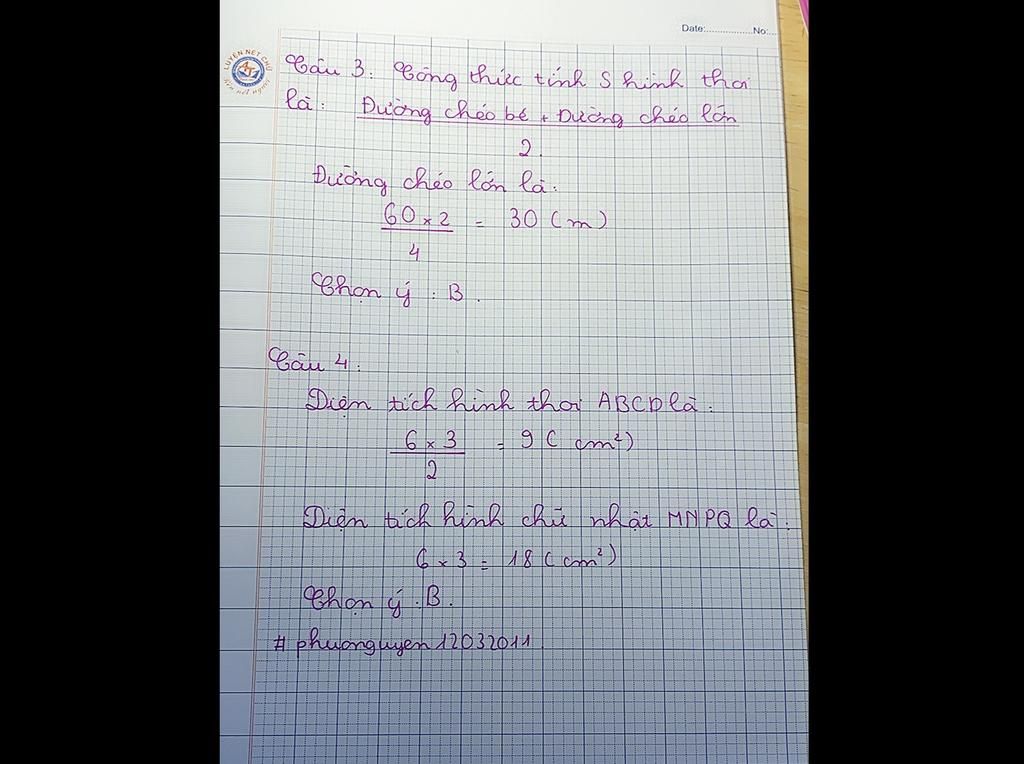 Date:................No:...
LUYỆN NÉT CHỮ
Câu 3: Công thức tính S hình thoi
là: Đường chéo bé + Đường chéo lớn
2.
Đường chéo lớn là:
60 x 2 = 30 (m)
4
Chọn ý : B.
Câu 4:
Diện tích hình thoi ABCD là:
6 x 3 = 9 ( cm²)
2
Diện tích hình chữ nhật MNPQ là:
6 x 3 = 18 ( cm²)
Chọn ý : B.
# phuonguyen12032011.